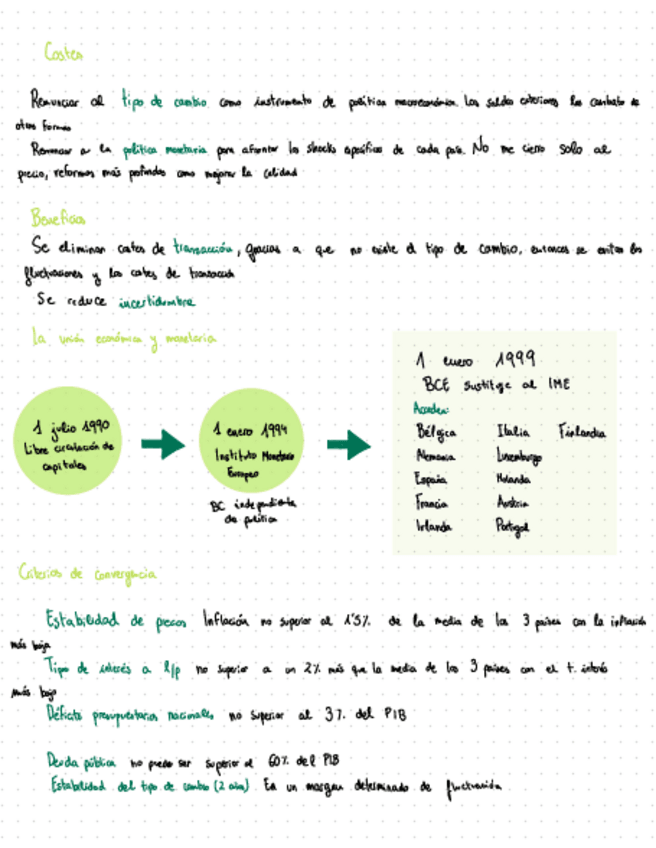 Costes
Renunciar al tipo de cambio como instrumento de política macroeconómica. Los saldos exteriores los combato de
otras formas
Renunciar a la política monetaria para afrontar los shocks específicos de cada país. No me cierro solo al
precio, reformas más profundas como mejorar la calidad
Beneficios
Se eliminan costes de transacción, gracias a que no existe el tipo de cambio, entonces se evitan las
fluctuaciones y los costes de transacción
Se reduce incertidumbre
La unión económica y monetaria
1 julio 1990
Libre circulación de
capitales
1 enero 1994
Instituto Monetario
Europeo
BC independiente
de política
1 enero 1999
BCE sustituye al IME
Acceden:
Bélgica Italia Finlandia
Alemania Luxemburgo
España Holanda
Francia Austria
Irlanda Portugal
Criterios de convergencia
Estabilidad de precios Inflación no superior al 1'5% de la media de los 3 países con la inflación
más baja
Tipo de interés a l/p no superior a un 2% más que la media de los 3 países con el t. interés
más bajo
Déficits presupuestarios nacionales no superior al 3% del PIB
Deuda pública no puede ser superior al 60% del PIB
Estabilidad del tipo de cambio (2 años) En un margen determinado de fluctuación